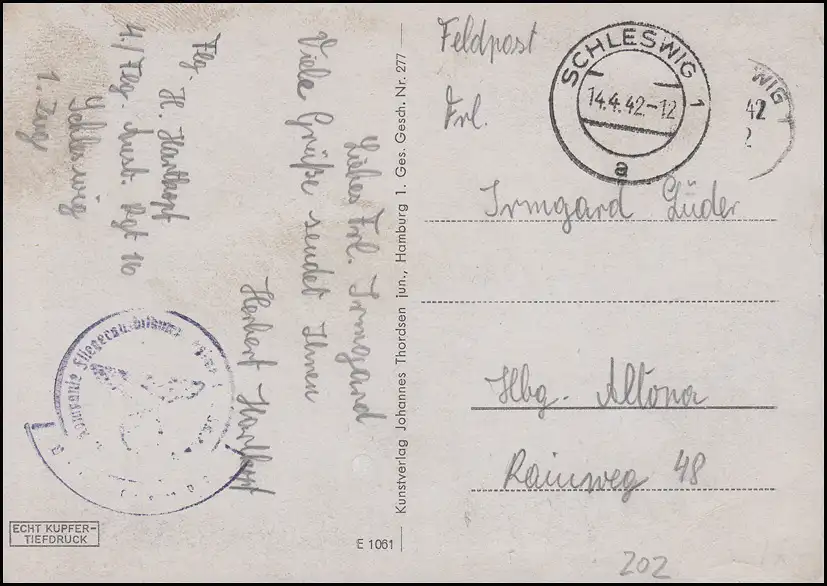 Flg. H. Hartkopf
4./Flg. Ausb. Rgt 16
Schleswig
1. Zug
Liebes Frl. Irmgard
Viele Grüße sendet Ihnen
Herbert Hartkopf
ECHT KUPFER-
TIEFDRUCK
Kunstverlag Johannes Thordsen jun., Hamburg 1. Ges. Gesch. Nr. 277
E 1061
Feldpost
SCHLESWIG 1
14.4.42.-12
a
WIG 1
42
2
Frl.
Irmgard Lüder
Hbg. Altona
Rainweg 48
202